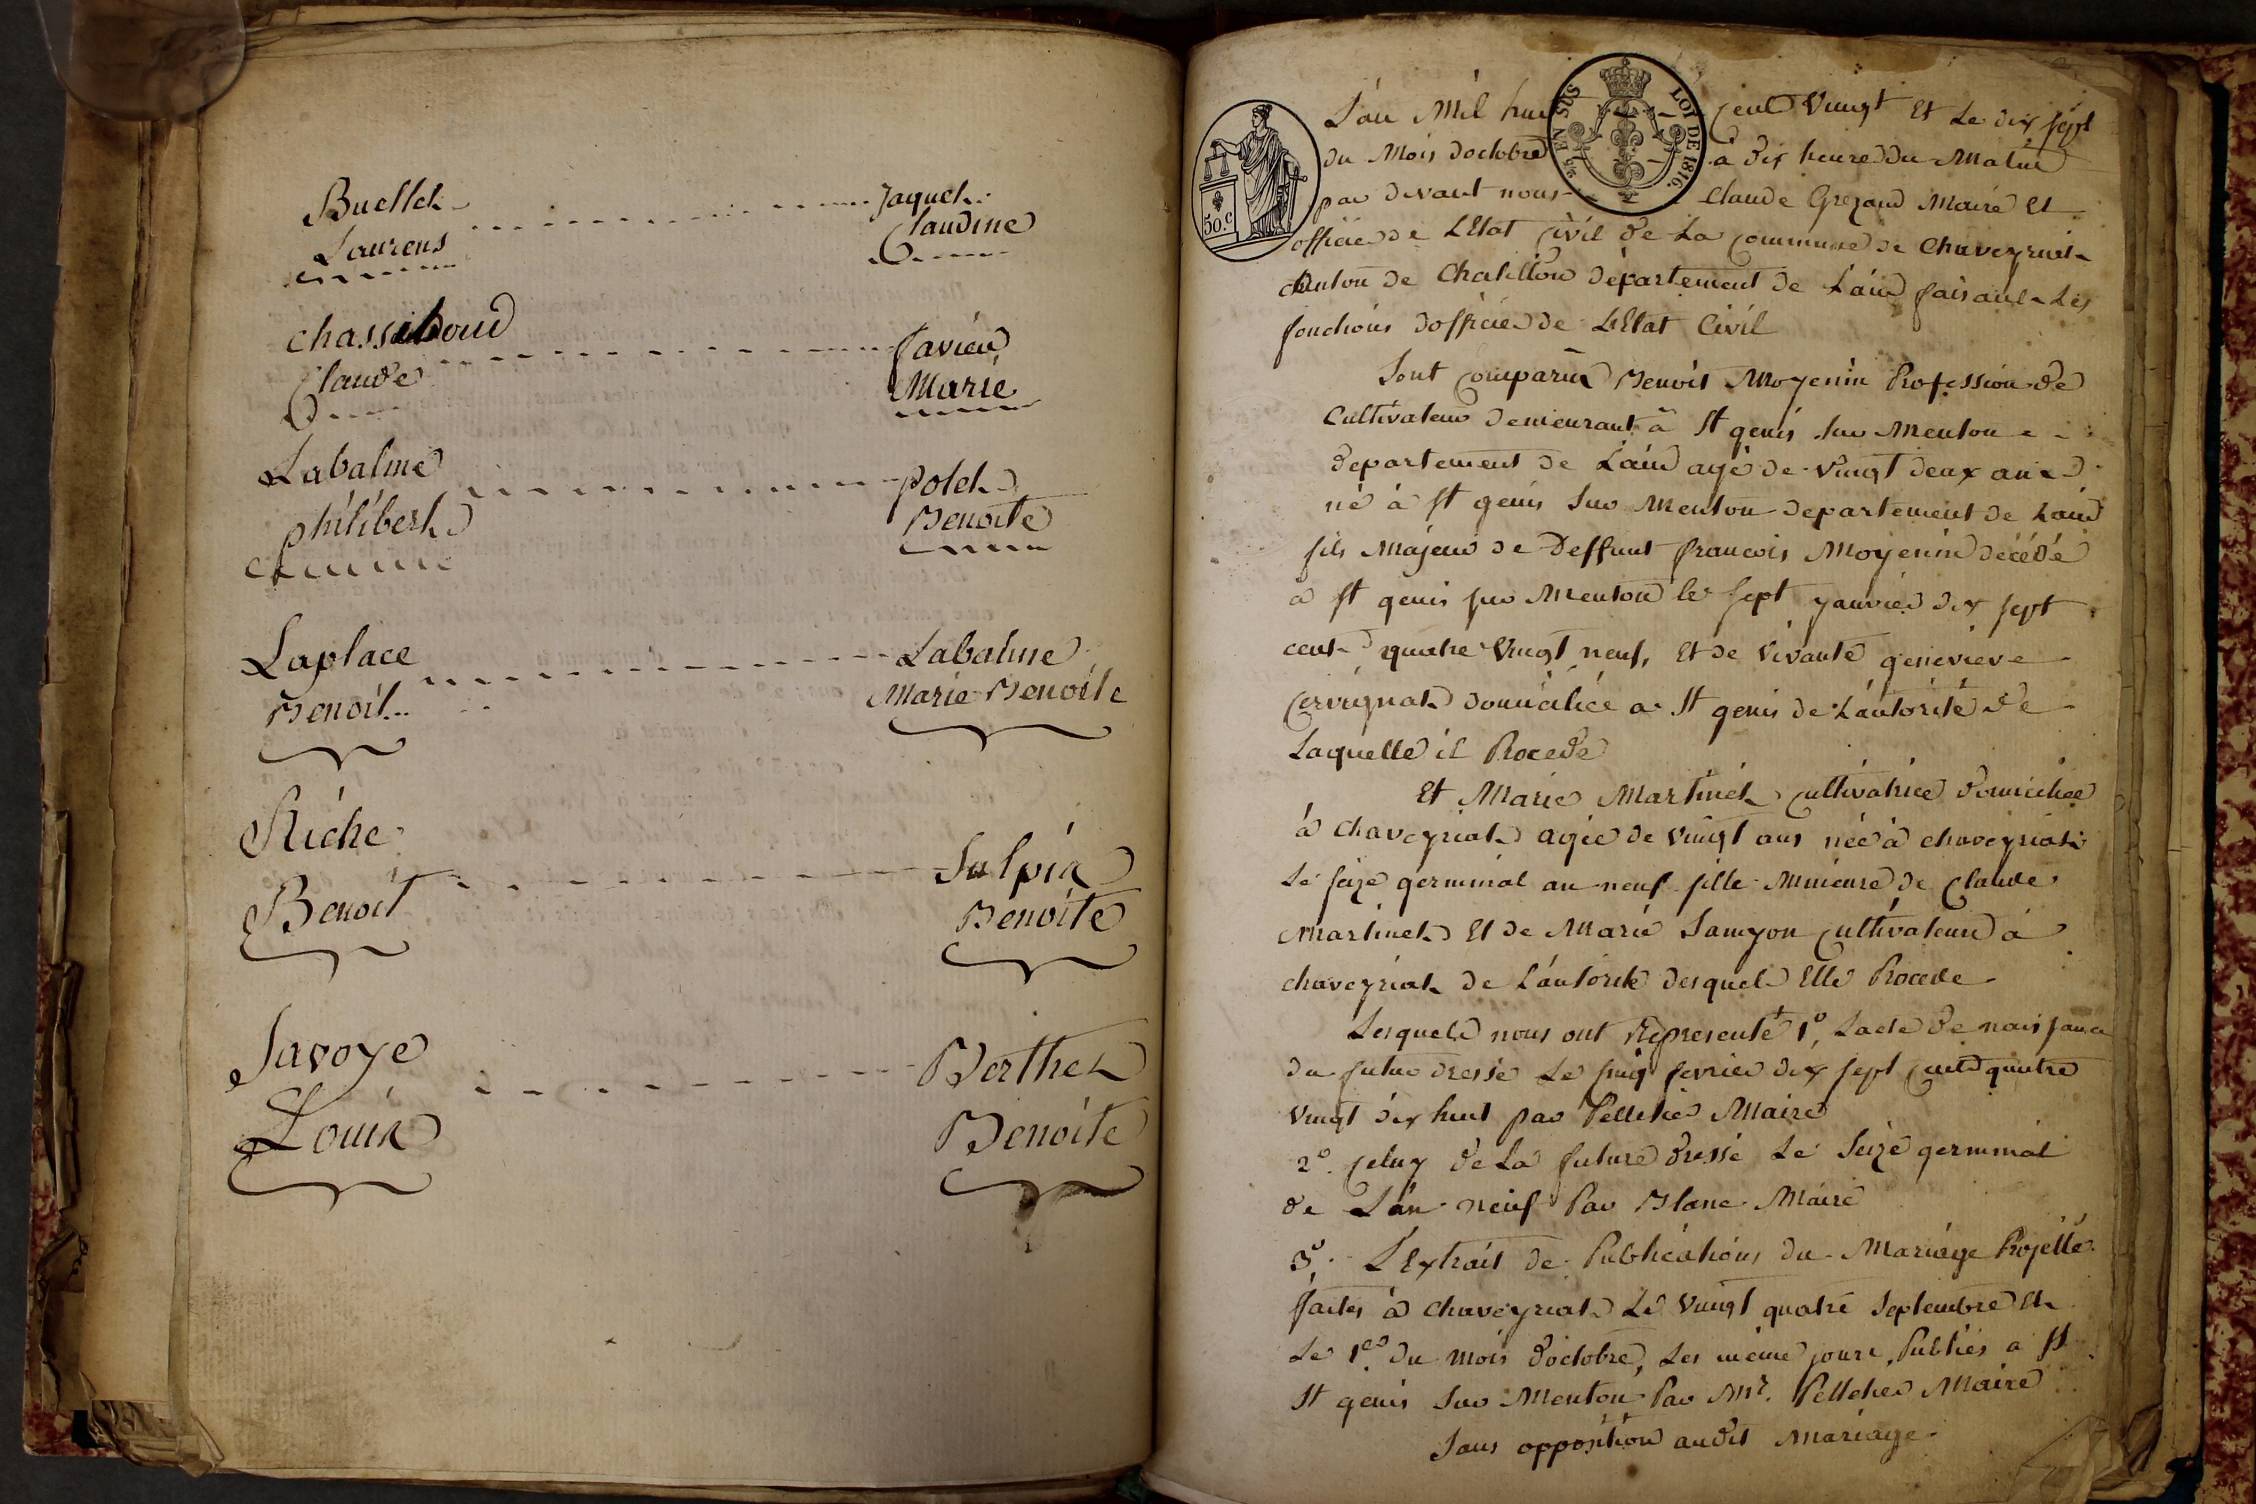 Buellet
Laurens
Jaquet
Claudine
Chassiboud
Claude
Favier
Marie
Labalme
philibert
polet
Benoite
Laplace
Benoit
Labalme
Marie Benoite
Riche
Benoit
Sulpix
Benoite
Savoye
Louis
Berthet
Benoite
50.c
EN SUS
LOI DE 1816.
L'an Mil huit cent Vingt Et Le dix sept
du Mois doctobre à dix heure du Matin
par devant nous Claude Grezaud Maire Et
officier de LEtat Civil de La Commune de Chaveyriat
Canton de Chatillon département de L'ain faisant Les
fonctions dofficier de LEtat Civil
Sont Comparus Benoit Moyenin Profession de
Cultivateur demeurant à St genis Sur Menton
département de L'ain agé de Vingt deux ans
né à St genis Sur Menton departement de Lain
fils Majeur de Deffunt francois Moyenin décédé
a St genis sur Menton le Sept janvier dix sept
cent quatre Vingt neuf, Et de Vivante genevieve
Cervignat domiciliée a St genis de L'autorité de
Laquelle il Procede
Et Marie Martinet Cultivatrice domiciliée
à Chaveyriat agée de vingt ans née à chaveyriat
Le seize germinal an neuf fille Mineure de Claude
Martinet Et de Marie Samyon Cultivateurs à
chaveyriat de L'autorité desquel Elle Procede
Lesquels nous ont Representé 1.º Lacte de naissance
du futur dressé Le fevrier dix sept Cent quatre
vingt dix huit par Pelletier Maire
2º. Celuy de La future dressé Le Seize germinal
de L'an neuf Par Blanc Maire
3º. L'Extrait de Publications du Mariage Projetté
faites à Chaveyriat Le Vingt quatre Septembre Et
Le 1er du mois doctobre, Les même jours, Publiés a St
St genis Sur Menton Par Mr. Pelletier Maire
Sans opposition audit Mariage